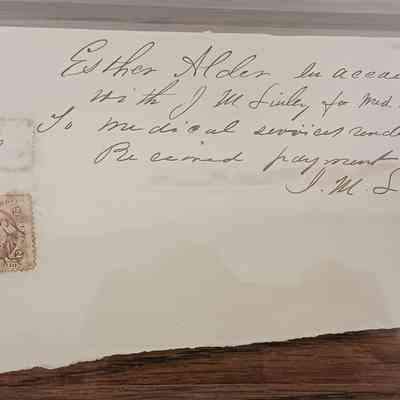 Esther Alden In accou
with J M Linley for Med.
To medical services rend
Received payment
J. M. L
2